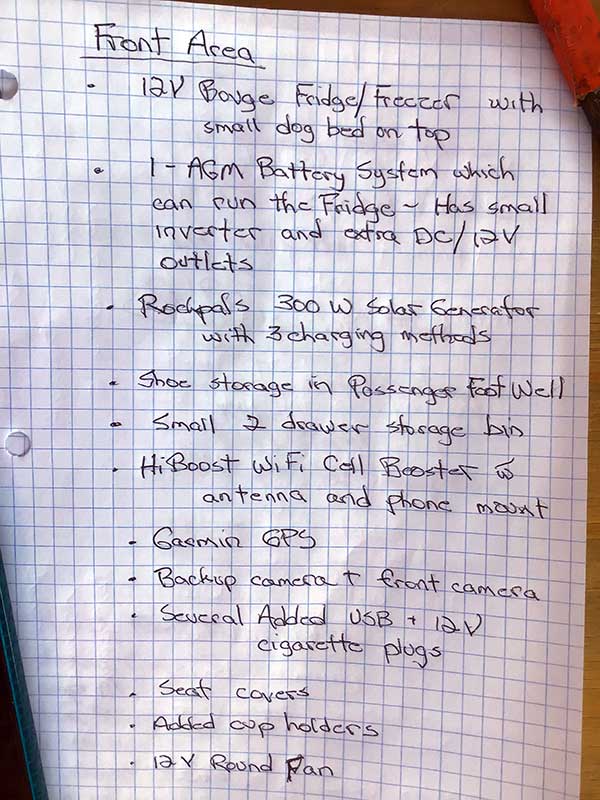 Front Area
• 12V Bouge Fridge/Freezer with
small dog bed on top
• 1 - AGM Battery System which
can run the Fridge - Has small
inverter and extra DC/12V
outlets
• Rockpals 300 W Solar Generator
with 3 charging methods
• Shoe storage in Passenger Foot Well
• Small 2 drawer storage bin
• HiBoost WiFi Cell Booster w
antenna and phone mount
• Garmin GPS
• Backup camera + front camera
• Several Added USB + 12V
cigarette plugs
• Seat covers
• Added cup holders
• 12V Round Fan